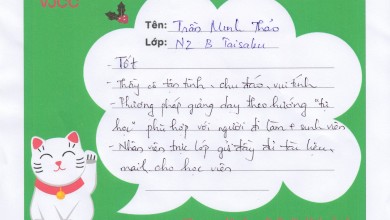 VJCC
Tên: Trần Minh Thảo
Lớp: N2 B Taisaku
- Tốt
- Thầy cô tận tình, chu đáo, vui tính
- Phương pháp giảng dạy theo hướng "tự
học" phù hợp với người đi làm + sinh viên
- Nhân viên trực lớp gửi đầy đủ tài liệu,
mail cho học viên